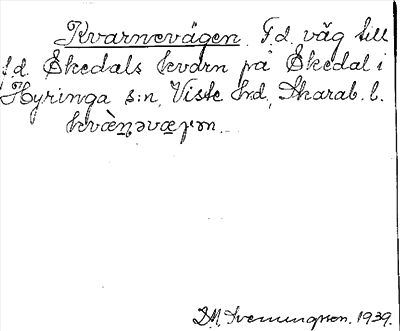 Kvarnevägen. F.d. väg till
f.d. Skedals kvarn på Skedal i
Hyringa s:n, Viste hrd, Skarab. l.
kvὰꞃəvægən.
D.M. Svenningsson. 1939.